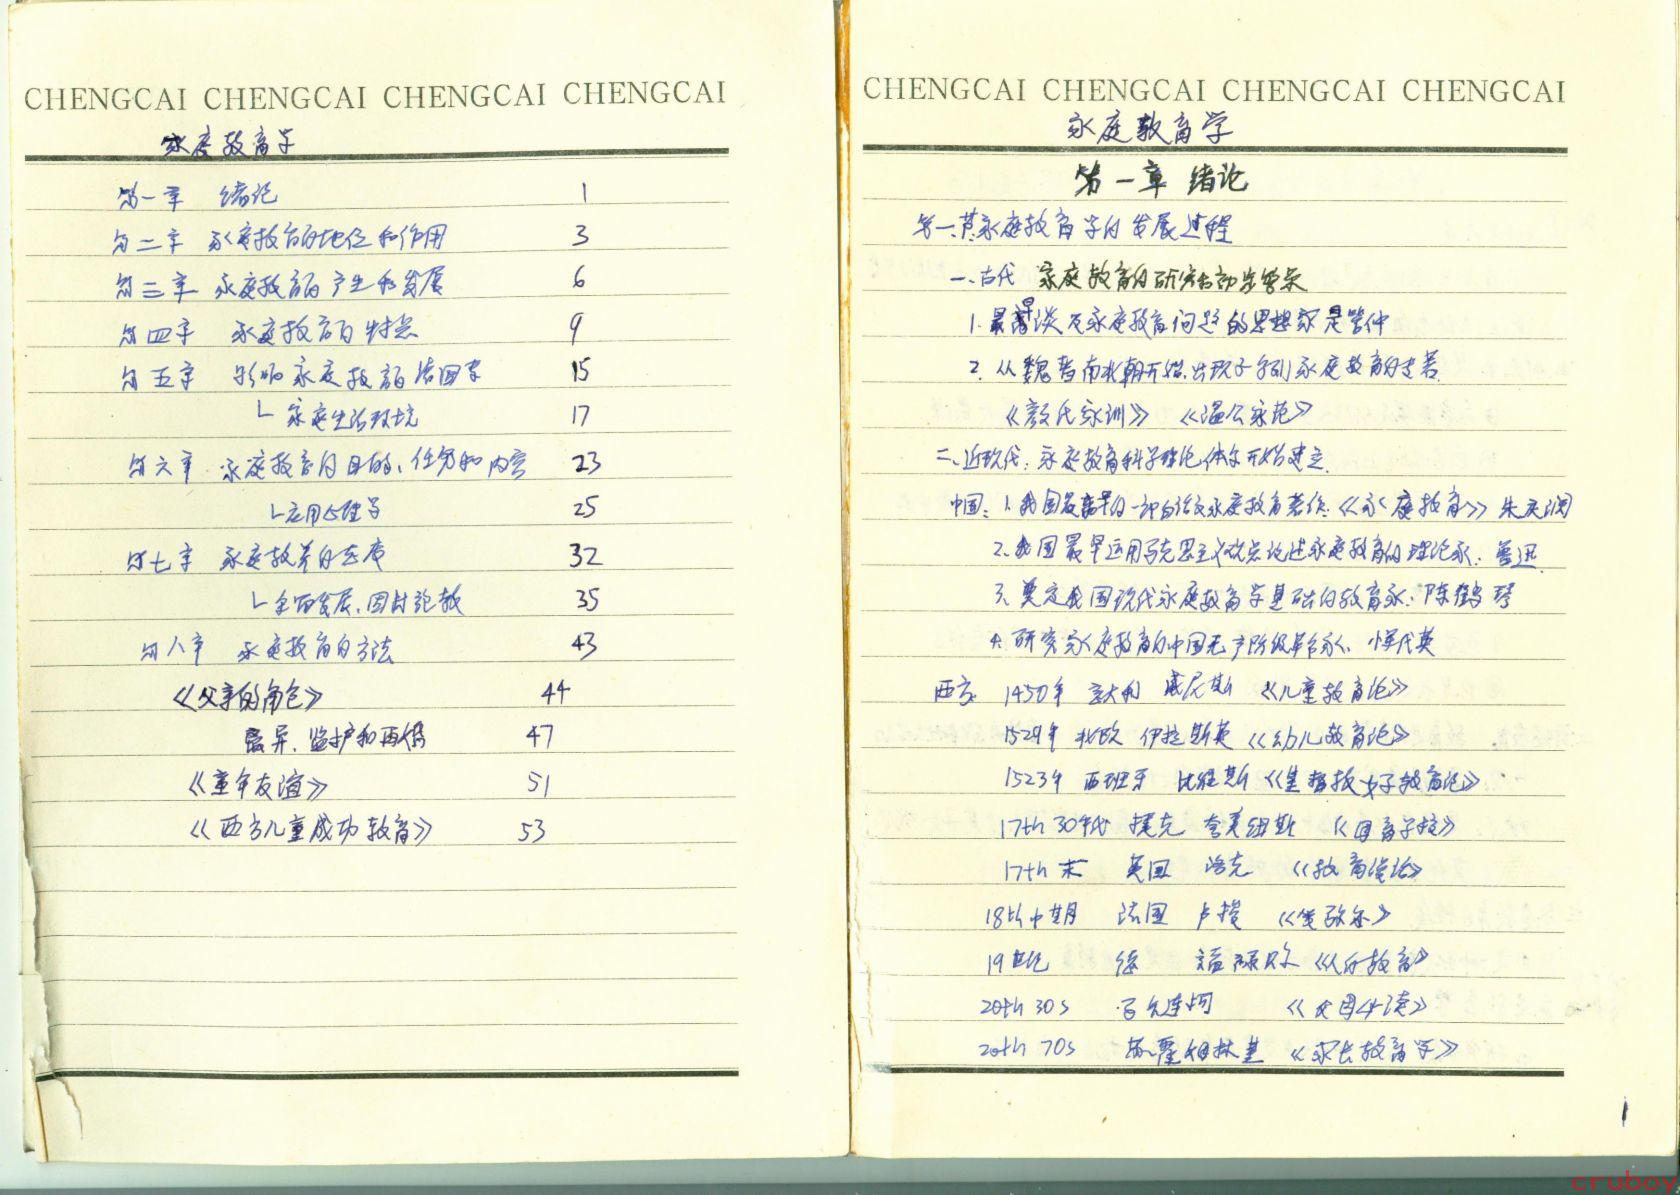 CHENGCAI CHENGCAI CHENGCAI CHENGCAI
家庭教育学
第一章 绪论 1
第二章 家庭教育的地位和作用 3
第三章 家庭教育的产生和发展 6
第四章 家庭教育的特点 9
第五章 影响家庭教育诸因素 15
└ 家庭生活环境 17
第六章 家庭教育的目的、任务和内容 23
└应用心理学 25
第七章 家庭教养的态度 32
└全面发展、因材施教 35
第八章 家庭教育的方法 43
《父亲的角色》 44
离异、监护和再婚 47
《童年友谊》 51
《西方儿童成功教育》 53
CHENGCAI CHENGCAI CHENGCAI CHENGCAI
家庭教育学
第一章 绪论
第一节.家庭教育学的发展过程
一、古代 家庭教育的研究
1.最早谈及家庭教育问题的思想家是管仲
2.从魏晋南北朝开始,出现了系列家庭教育的专著.
《颜氏家训》 《温公家范》
二、近现代:家庭教育科学理论体系开始建立.
中国:1.我国最早的一部白话文家庭教育著作:《家庭教育》 朱庆澜
2.我国最早运用马克思主义观点论述家庭教育的理论家:鲁迅.
3.奠定我国现代家庭教育学基础的教育家:陈鹤琴
4.研究家庭教育的中国无产阶级革命家:恽代英
西方 1450年 意大利 威尼斯 《儿童教育论》
1529年 北欧 伊拉斯莫 《幼儿教育论》
1523年 西班牙 比维斯 《基督教女子教育论》
17th 30年代 捷克 夸美纽斯 《母育学校》
17th 末 英国 洛克 《教育漫话》
18th中期 法国 卢梭 《爱弥尔》
19世纪 德 福禄贝尔 《人的教育》
20th 30s 马卡连柯 《父母必读》
20th 70s 苏霍姆林斯基 《家长教育学》
1
cruboy